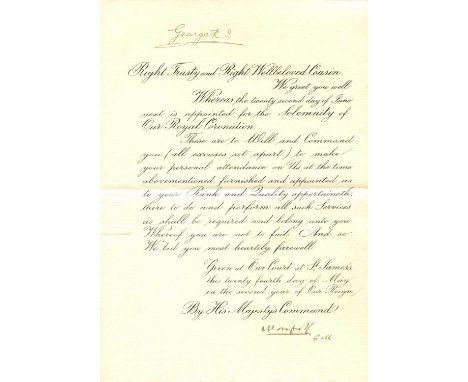 George R. I.
Right Trusty and Right Wellbeloved Cousin
We greet you well
Whereas the twenty second day of June
next is appointed for the Solemnity of
Our Royal Coronation
These are to Will and Command
you (all excuses set apart) to make
your personal attendance on Us at the time
abovementioned furnished and appointed as
to your Rank and Quality appertaineth,
there to do and perform all such Services
as shall be required and belong unto you
Whereof you are not to fail And so
We bid you most heartily farewell
Given at Our Court at St. James's
the twenty fourth day of May
in the second year of Our Reign
By His Majesty's Command
Norfolk
E M